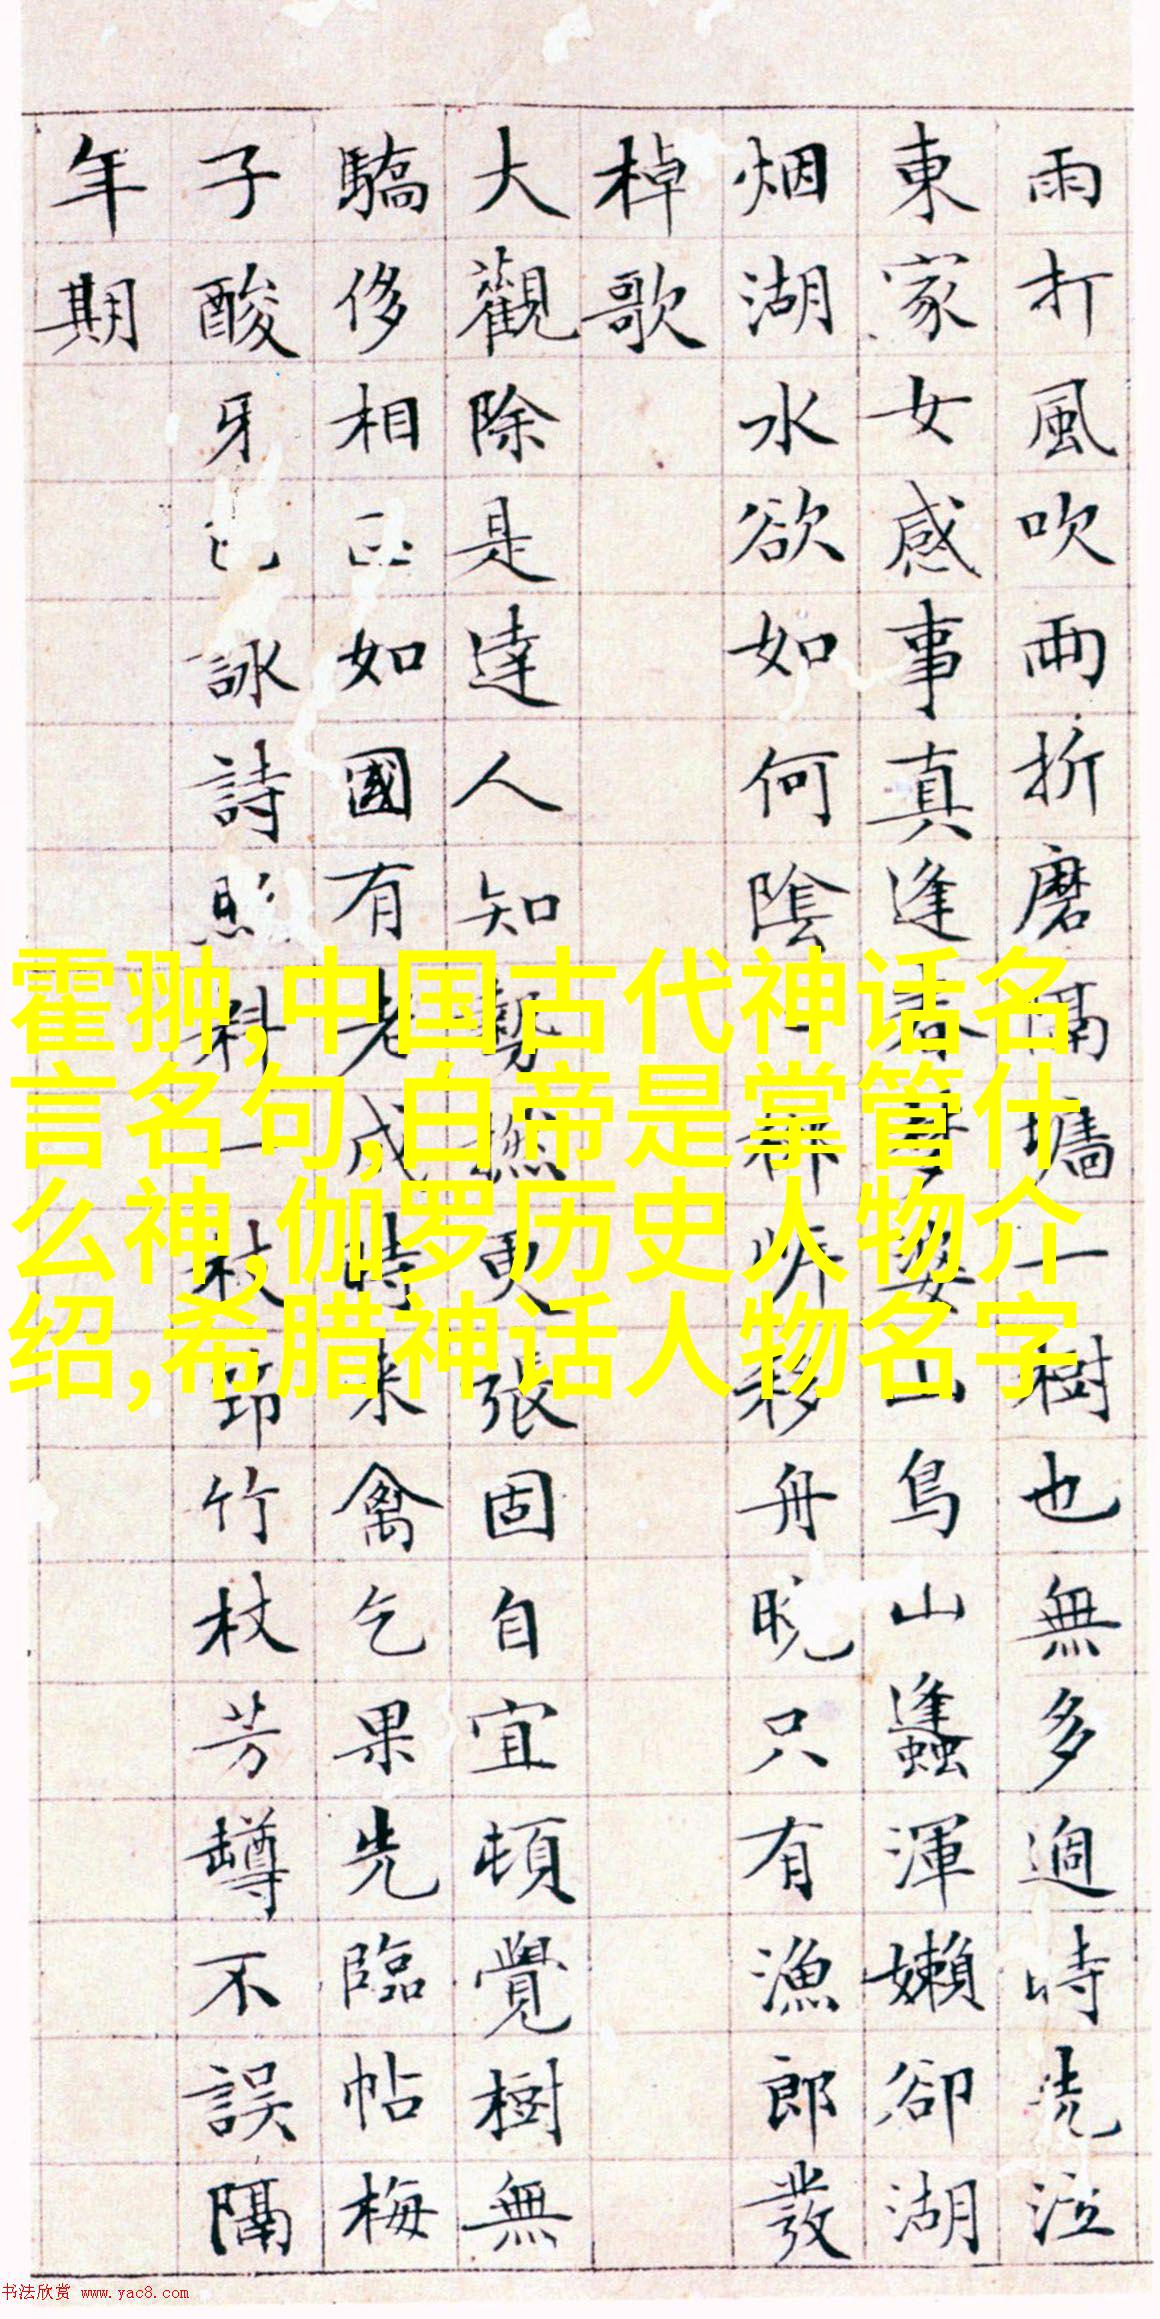 雨打風吹雨折磨隔墻一樹也無多過時先泣
東家女感事真逢春夢婆山鳥山蠭渾嬾卻湖
烟湖水欲如何陰一郡明移舟晚只有漁郎發
棹歌
大觀除是達人知勢撚更張固自宜頓覺樹無
驕侈相如國有老成時來禽乞果先臨帖梅
子酸牙詠詩照料一枝筇竹杖芳罇不誤隔
年期
霍翀,中国古代神话名
言名句,白帝是掌管什
么神,伽罗历史人物介
绍,希腊神话人物名字
书法欣赏 www.yac8.com